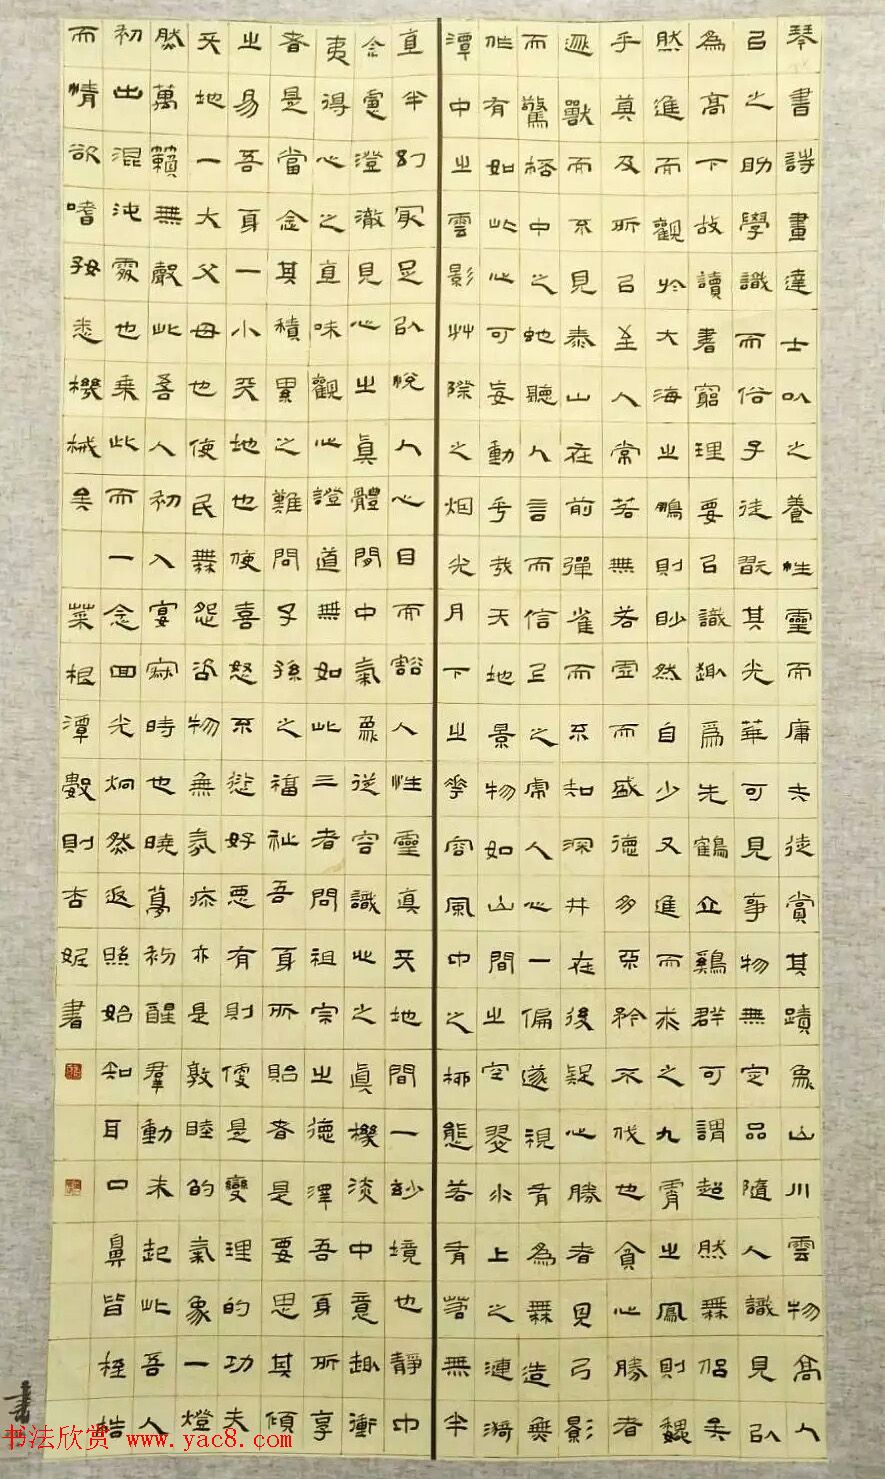 琴書詩畫達士以之養性靈而庸夫徒賞其蹟象山川雲物高人
以之助學識而俗子徒翫其光華可見事物無定品隨人識見以
為高下故讀書窮理要以識趣爲先鶴立鷄群可謂超然無侶矣
然進而觀於大海之鵬則眇然自少又進而求之九霄之鳳則巍
乎莫及所以至人常若無若虛而盛德多不矜不伐也貪心勝者
逐獸而不見泰山在前彈雀而不知深井在後疑心勝者見弓影
而驚杯中之蛇聽人言而信市之虎人心一偏遂視有為無造無
作有如此心可妄動乎哉天地景物如山間之空翠水上之漣漪
潭中之雲影艸際之烟光月下之花容風中之柳態若有若無半
直半幻最足以悅人心目而豁人性靈真天地間一妙境也靜中
念慮澄澈見心之真體閒中氣象從容識心之真機淡中意趣衝
夷得心之直味觀心證道無如此三者問祖宗之德澤吾身所享
者是當念其積累之難問子孫之福祉吾身所貽者是要思其傾
之易吾身一小天地也使喜怒不愆好惡有則便是變理的功夫
天地一大父母也使民無怨咨物無氛疹亦是敦睦的氣象一燈
然萬籟無聲此吾人初入宴寂時也曉夢初醒羣動未起此吾人
初出混沌處也乘此而一念回光炯然返照始知耳口鼻皆桎梏
而情欲嗜好悉機械矣 菜根潭數則杏妮書
书法欣赏 www.yac8.com